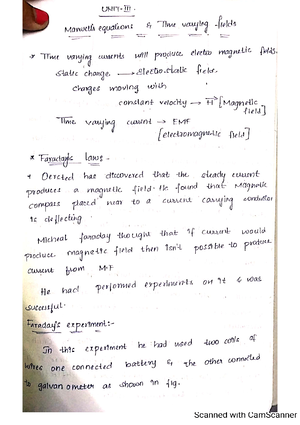 UNIT-III
Maxwells equations & Time varying fields
* Time varying currents will produce electro magnetic fields.
Static charge → Electro static field.
charges moving with
constant velocity → H [Magnetic
field]
Time varying current → EMF
[electromagnetic field]
* Faradays laws -
* Oersted has discovered that the steady current
produces a magnetic field. He found that Magnetic
compass placed near to a current carrying conductor
is deflecting.
Micheal faraday thought that if current would
produce magnetic field then isn't possible to produce
current from M.F
He had performed experiments on it & was
successful.
Faraday's experiment:-
In this experiment he had used two coils of
wires one connected battery & the other connected
to galvanometer as shown in fig.
Scanned with CamScanner